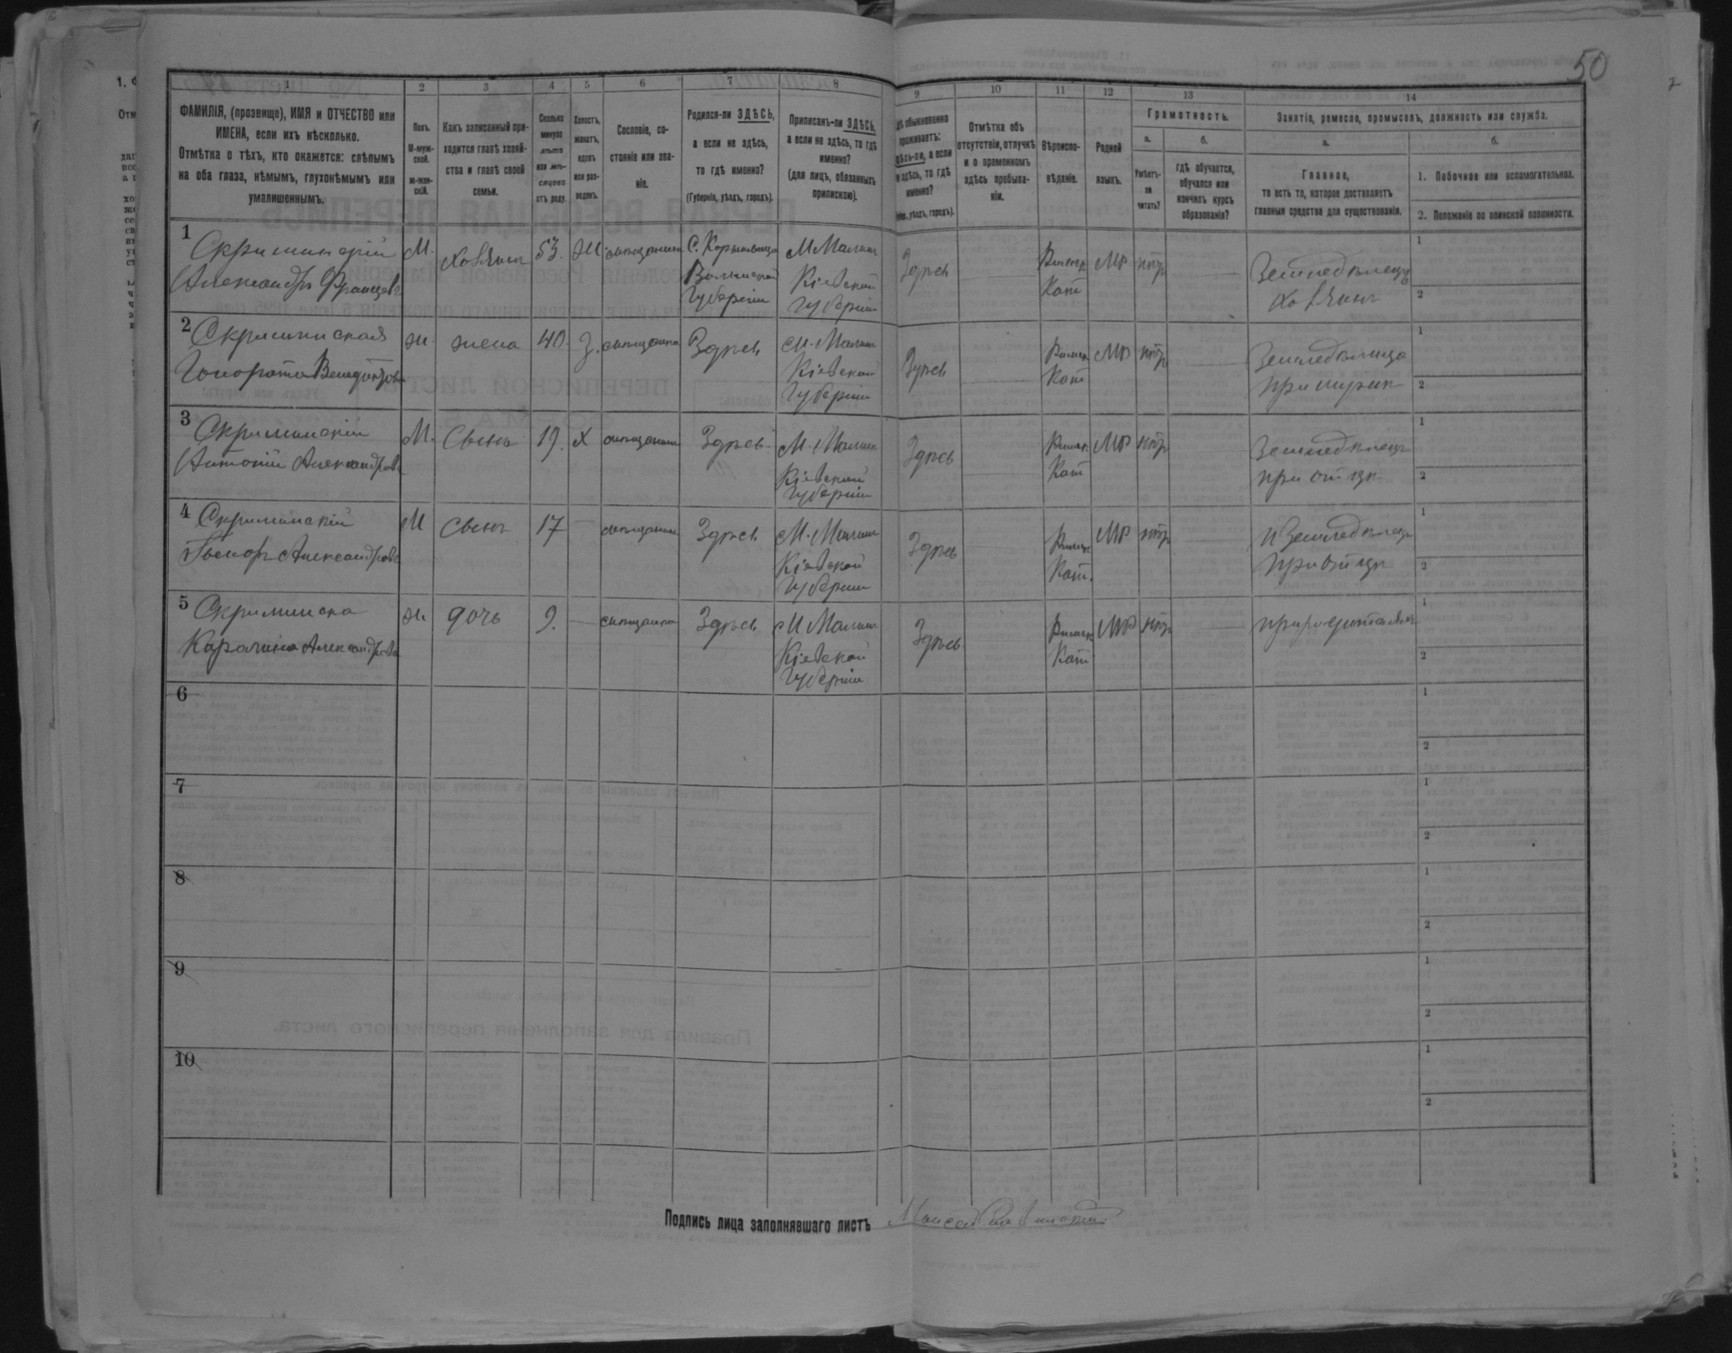 50
1 2 3 4 5 6 7 8 9 10 11 12 13 14
ФАМИЛІЯ, (прозвище), ИМЯ и ОТЧЕСТВО или
ИМЕНА, если ихъ нѣсколько.
Отмѣтка о тѣхъ, кто окажется: слѣпымъ
на оба глаза, нѣмымъ, глухонѣмымъ или
умалишеннымъ.
Полъ.
М-муж-
ской.
ж-жен-
скій.
Какъ записанный при-
ходится главѣ хозяй-
ства и главѣ своей
семьи.
Сколько
минуло
лѣтъ
или мѣ-
сяцевъ
отъ роду.
Холостъ,
женатъ,
вдовъ
или раз-
веденъ.
Сословіе, со-
стояніе или зва-
ніе.
Родился-ли ЗДѢСЬ,
а если не здѣсь,
то гдѣ именно?
(Губернія, уѣздъ, городъ).
Приписанъ-ли ЗДѢСЬ,
а если не здѣсь, то гдѣ
именно?
(для лицъ, обязанныхъ
припискою).
обыкновенно
проживаетъ:
здѣсь-ли, а если
не здѣсь, то гдѣ
именно?
уѣздъ, городъ).
Отмѣтка объ
отсутствіи, отлучкѣ
и о временномъ
здѣсь пребыва-
ніи.
Вѣроиспо-
вѣданіе.
Родной
языкъ.
Грамотность.
а. б.
Умѣетъ-
ли
читать?
Гдѣ обучается,
обучался или
кончилъ курсъ
образованія?
Занятіе, ремесло, промыселъ, должность или служба.
а. б.
Главное,
то есть то, которое доставляетъ
главныя средства для существованія.
1. Побочное или вспомогательное.
2. Положеніе по воинской повинности.
1
Александръ Францевъ
М. хозяинъ 53. Ж
С.
Волынской
Губерніи
М Малин
Кіевской
Губерніи
Здѣсь
Кат
МР нѣтъ
Земледѣлецъ
хозяинъ
1
2
2 Скриминская
ж. жена 40. З. мѣщанка Здѣсь
М. Малин
Кіевской
Губерніи
Здѣсь
Кат
МР нѣтъ
Земледѣлица
при мужѣ
1
2
3 Скриминскій
Антоній Александровъ
М. Сынъ 19. Х Здѣсь
М. Малин
Кіевской
Губерніи
Здѣсь
Кат
МР нѣтъ
Земледѣлецъ
при отцѣ
1
2
4 Скриминскій
Александровъ
М сынъ 17 Здѣсь
М. Малин
Кіевской
Губерніи
Здѣсь
Кат.
МР нѣтъ
Земледѣлецъ
при отцѣ
1
2
5
Каролина Александрова
ж дочь 9. мѣщанка Здѣсь
М Малин
Кіевской
Губерніи
Здѣсь
Кат
МР нѣтъ
при родителяхъ
1
2
6
1
2
7
1
2
8
1
2
9
1
2
10
1
2
Подпись лица заполнявшаго листъ